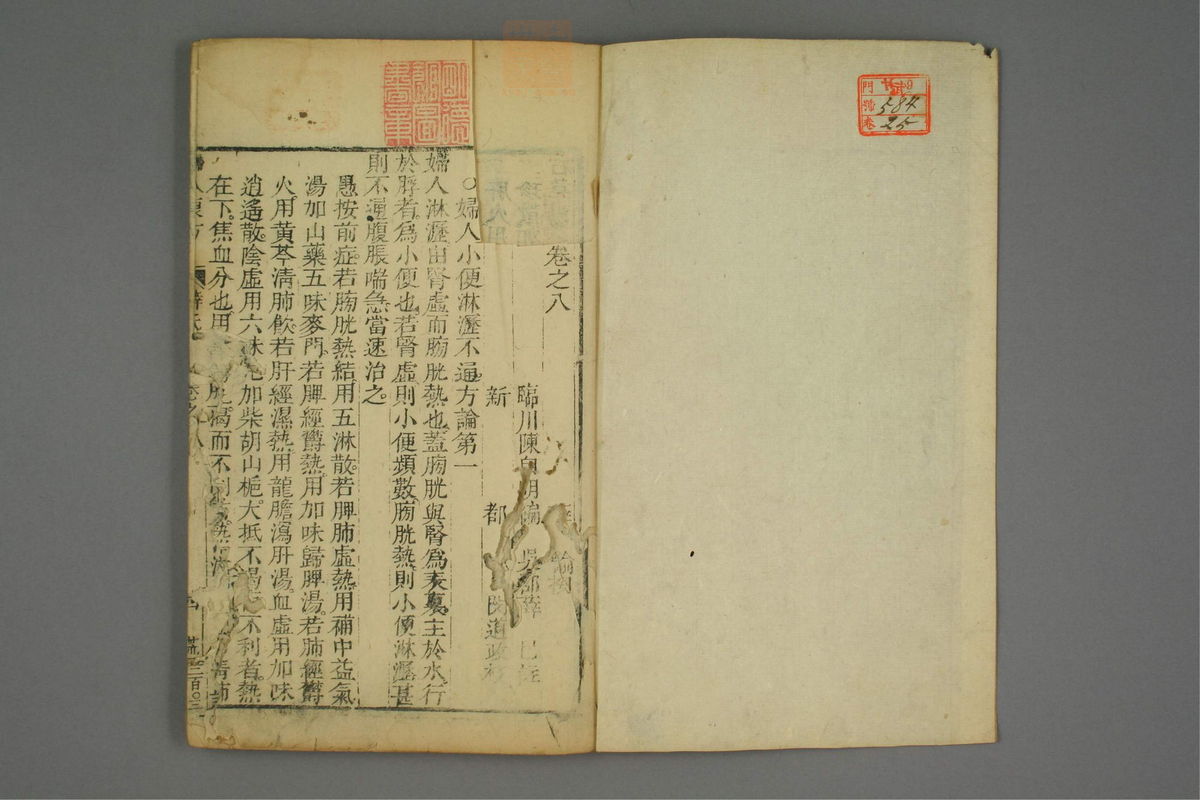 門 號 卷
584
25
明德館圖書章
卷之八
臨川陳自明編 吳郡薛己註
新都
○婦人小便淋瀝不通方論第一
婦人淋瀝由腎虛而膀胱熱也蓋膀胱與腎為表裏主於水行
於脬者為小便也若腎虛則小便頻數膀胱熱則小便淋瀝甚
則不通腹脹喘急當速治之
愚按前症若膀胱熱結用五淋散若脾肺虛熱用補中益氣
湯加山藥五味麥門若脾經鬱熱用加味歸脾湯若肺經鬱
火用黃芩清肺飲若肝經濕熱用龍膽瀉肝湯血虛用加味
逍遙散陰虛用六味 加柴胡山梔大抵不渴 不利者熱
在下焦血分也用 渴而不利 熱 清肺